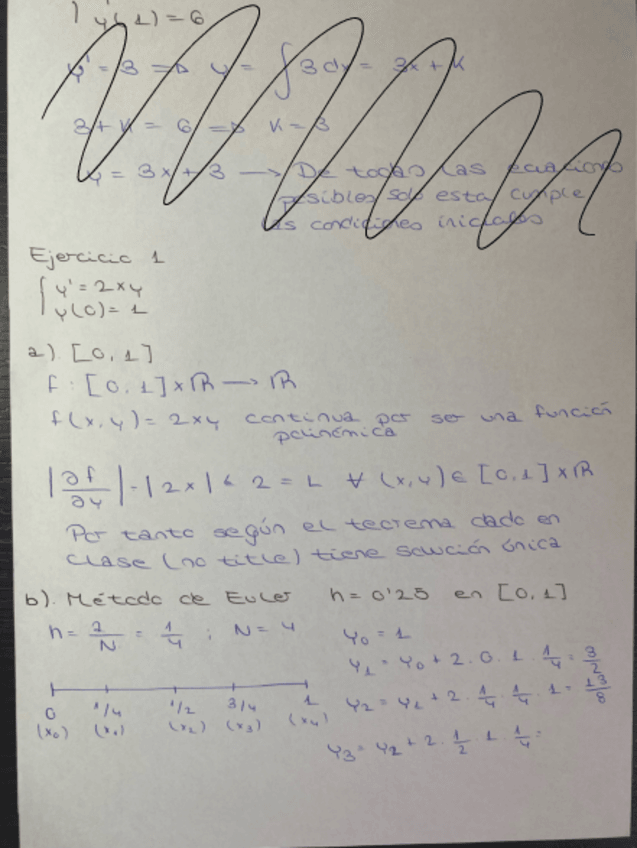 y(1) = 6
y' = 3 => y = ∫ 3 dx = 3x + K
3 + K = 6 => K = 3
y = 3x + 3 → De todas las ecuaciones
posibles solo esta cumple
las condiciones iniciales
Ejercicio 1
{ y' = 2xy
y(0) = 1
a). [0, 1]
f: [0, 1] x ℝ → ℝ
f(x, y) = 2xy continua por ser una función
polinómica
|∂f/∂y| = |2x| ≤ 2 = L ∀ (x, y) ∈ [0, 1] x ℝ
Por tanto según el teorema dado en
clase (no title) tiene solución única
b). Método de Euler h = 0'25 en [0, 1]
h = 1/N = 1/4 ; N = 4
y₀ = 1
y₁ = y₀ + 2 · 0 · 1 · 1/4 = 3/2
y₂ = y₁ + 2 · 1/4 · 1/4 · 1 = 13/8
y₃ = y₂ + 2 · 1/2 · 1 · 1/4 =
0 1/4 1/2 3/4 1
(x₀) (x₁) (x₂) (x₃) (x₄)